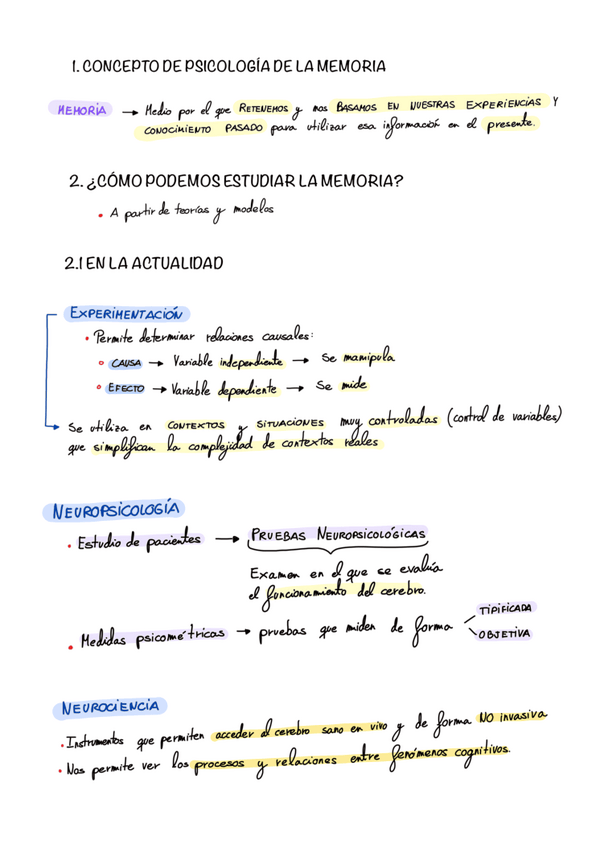 1. CONCEPTO DE PSICOLOGÍA DE LA MEMORIA
MEMORIA → Medio por el que RETENEMOS y nos BASAMOS EN NUESTRAS EXPERIENCIAS Y
CONOCIMIENTO PASADO para utilizar esa información en el presente.
2. ¿CÓMO PODEMOS ESTUDIAR LA MEMORIA?
• A partir de teorías y modelos
2.1 EN LA ACTUALIDAD
EXPERIMENTACIÓN
• Permite determinar relaciones causales:
• CAUSA → Variable independiente → Se manipula
• EFECTO → Variable dependiente → Se mide
Se utiliza en CONTEXTOS y SITUACIONES muy controladas (control de variables)
que simplifican la complejidad de contextos reales
NEUROPSICOLOGÍA
• Estudio de pacientes → PRUEBAS NEUROPSICOLÓGICAS
Examen en el que se evalúa
el funcionamiento del cerebro.
• Medidas psicométricas → pruebas que miden de forma
TIPIFICADA
OBJETIVA
NEUROCIENCIA
• Instrumentos que permiten acceder al cerebro sano en vivo y de forma NO invasiva
• Nos permite ver los procesos y relaciones entre fenómenos cognitivos.